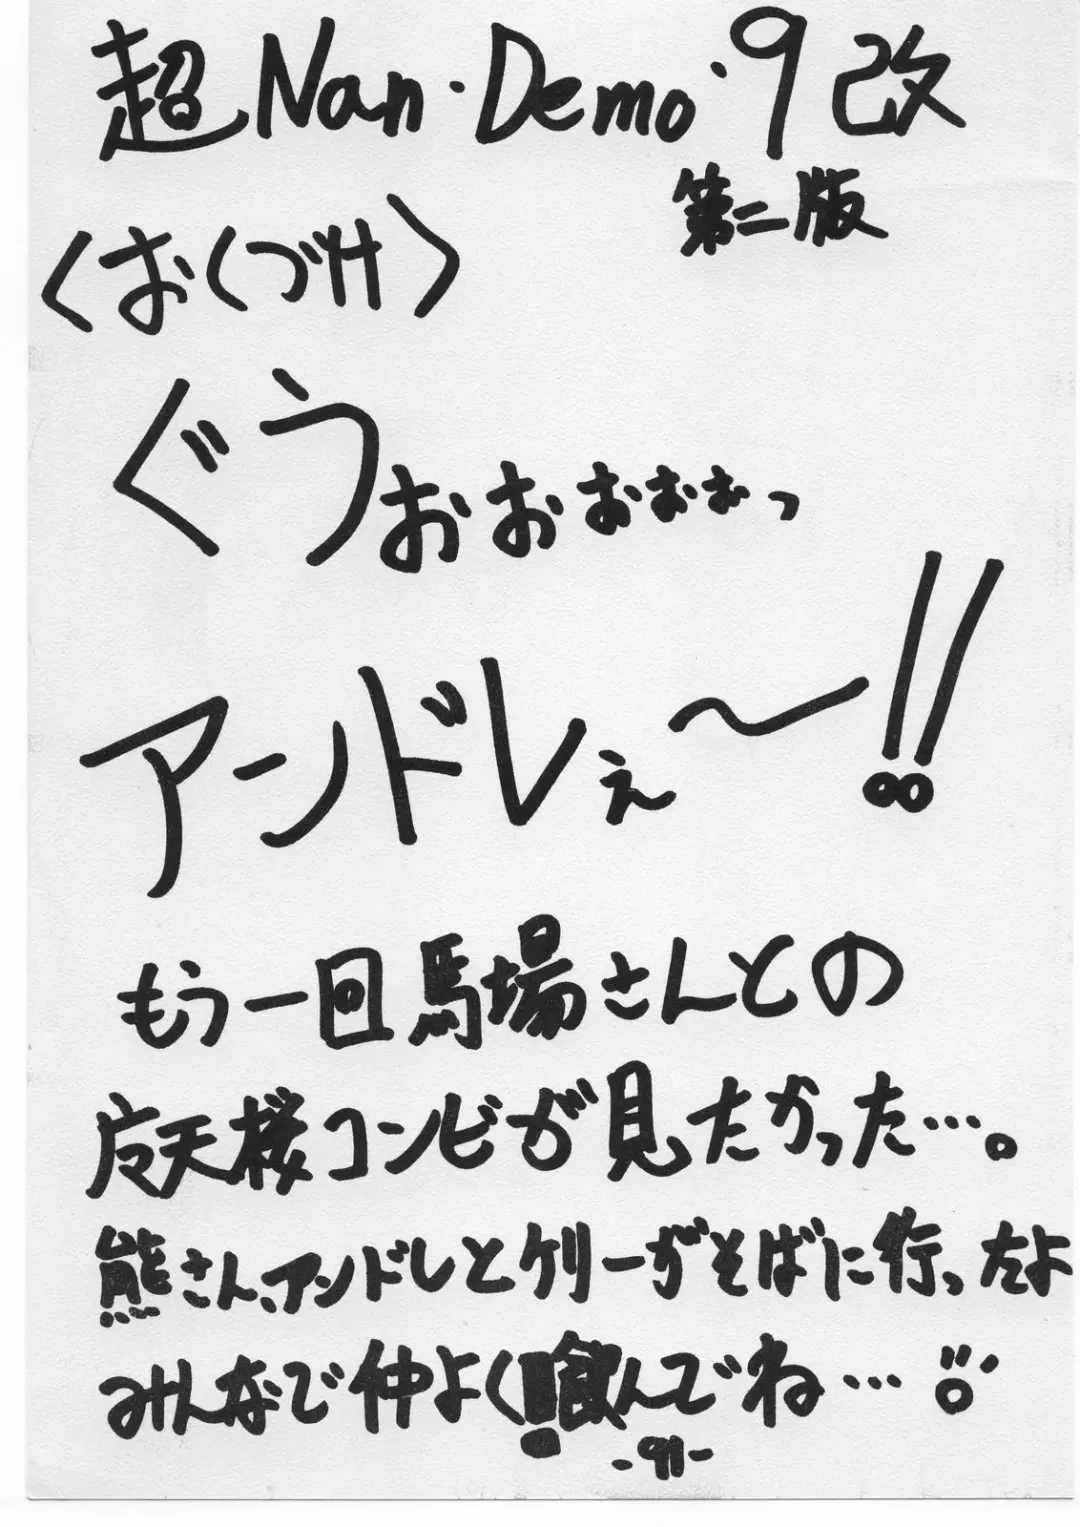 超Nan・Demo・9改
第二版
〈おくづけ〉
ぐうぉぉぉぉぉっ
アンドレぇ〜!!
もう一回馬場さんとの
天桜コンビが見たかった…。
熊さん、アンドレとケリーがそばに行ったよ
みんなで仲よく飲んでね…
-91-